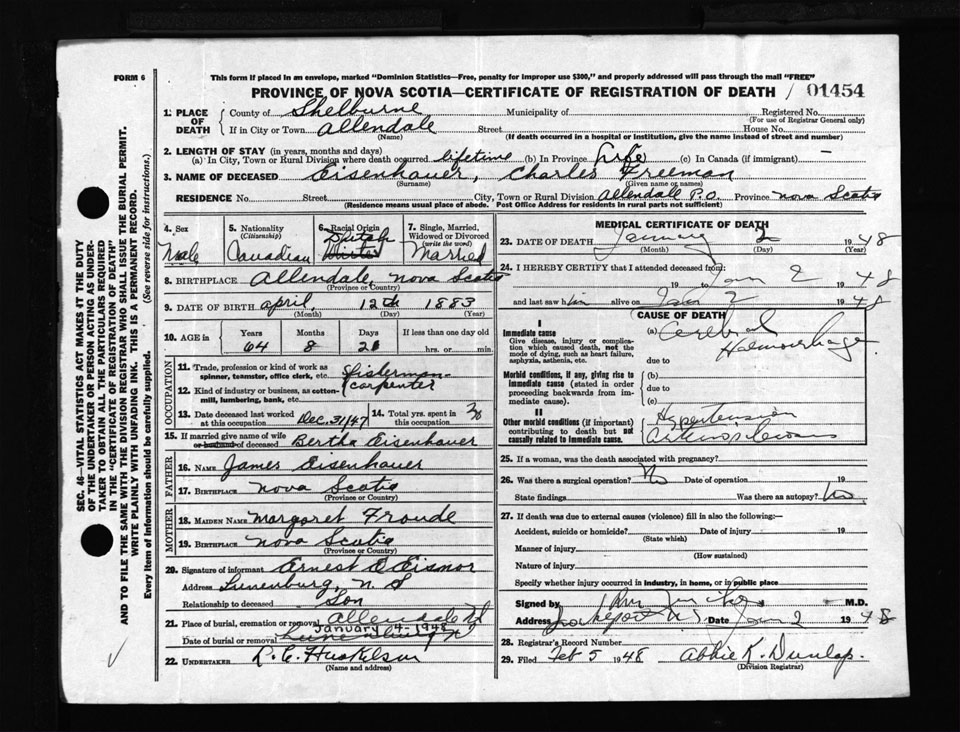 FORM 6
This form if placed in an envelope, marked "Dominion Statistics—Free, penalty for improper use $300," and properly addressed will pass through the mail "FREE"
PROVINCE OF NOVA SCOTIA—CERTIFICATE OF REGISTRATION OF DEATH / 01454
SEC. 46—VITAL STATISTICS ACT MAKES IT THE DUTY
OF THE UNDERTAKER OR PERSON ACTING AS UNDER-
TAKER TO OBTAIN ALL THE PARTICULARS REQUIRED
IN THE "CERTIFICATE OF REGISTRATION OF DEATH"
AND TO FILE THE SAME WITH THE DIVISION REGISTRAR WHO SHALL ISSUE THE BURIAL PERMIT.
WRITE PLAINLY WITH UNFADING INK. THIS IS A PERMANENT RECORD.
Every item of information should be carefully supplied. (See reverse side for instructions.)
1. PLACE OF DEATH
County of Shelburne Municipality of Registered No.
(For use of Registrar General only)
If in City or Town Allendale Street House No.
(Name) (If death occurred in a hospital or institution, give the name instead of street and number)
2. LENGTH OF STAY (in years, months and days)
(a) In City, Town or Rural Division where death occurred lifetime (b) In Province Life (c) In Canada (if immigrant) —
3. NAME OF DECEASED Eisenhauer, Charles Freeman
(Surname) (Given name or names)
RESIDENCE No. Street City, Town or Rural Division Allendale P.O. Province Nova Scotia
(Residence means usual place of abode. Post Office Address for residents in rural parts not sufficient)
4. Sex Male
5. Nationality (Citizenship) Canadian
6. Racial Origin Dutch
7. Single, Married, Widowed or Divorced (write the word) Married
8. BIRTHPLACE Allendale Nova Scotia
(Province or Country)
9. DATE OF BIRTH April, 12th 1883
(Month) (Day) (Year)
10. AGE in Years Months Days If less than one day old
64 8 21 hrs. or min.
OCCUPATION
11. Trade, profession or kind of work as spinner, teamster, office clerk, etc. Fisherman
12. Kind of industry or business, as cotton-mill, lumbering, bank, etc. carpenter
13. Date deceased last worked at this occupation Dec. 31/47
14. Total yrs. spent in this occupation
15. If married give name of wife or husband of deceased Bertha Eisenhauer
FATHER
16. NAME James Eisenhauer
17. BIRTHPLACE Nova Scotia
(Province or Country)
MOTHER
18. MAIDEN NAME Margaret Froude
19. BIRTHPLACE Nova Scotia
(Province or Country)
20. Signature of informant Ernest E Eisnor
Address Lunenburg, N. S
Relationship to deceased Son
21. Place of burial, cremation or removal Allendale
January 4- 1948
Date of burial or removal
22. UNDERTAKER
(Name and address)
MEDICAL CERTIFICATE OF DEATH
23. DATE OF DEATH January 2 1948
(Month) (Day)
24. I HEREBY CERTIFY that I attended deceased from:
19 to Jan 2 1948
and last saw him alive on Jan 2 1948
CAUSE OF DEATH
I
Immediate cause
Give disease, injury or complication which caused death, not the mode of dying, such as heart failure, asphyxia, asthenia, etc.
(a) Cerebral Haemorrhage
due to
Morbid conditions, if any, giving rise to immediate cause (stated in order proceeding backwards from immediate cause).
(b)
due to
(c)
II
Other morbid conditions (if important) contributing to death but not causally related to immediate cause.
Hypertension
25. If a woman, was the death associated with pregnancy?
26. Was there a surgical operation? No Date of operation 19
State findings Was there an autopsy? No
27. If death was due to external causes (violence) fill in also the following:—
Accident, suicide or homicide? Date of injury 19
(State which)
Manner of injury
(How sustained)
Nature of injury
Specify whether injury occurred in industry, in home, or in public place
Signed by M.D.
Address Date Jan 2 1948
28. Registrar's Record Number
29. Filed Feb 5 1948 Abbie K. Dunlap.
(Division Registrar)